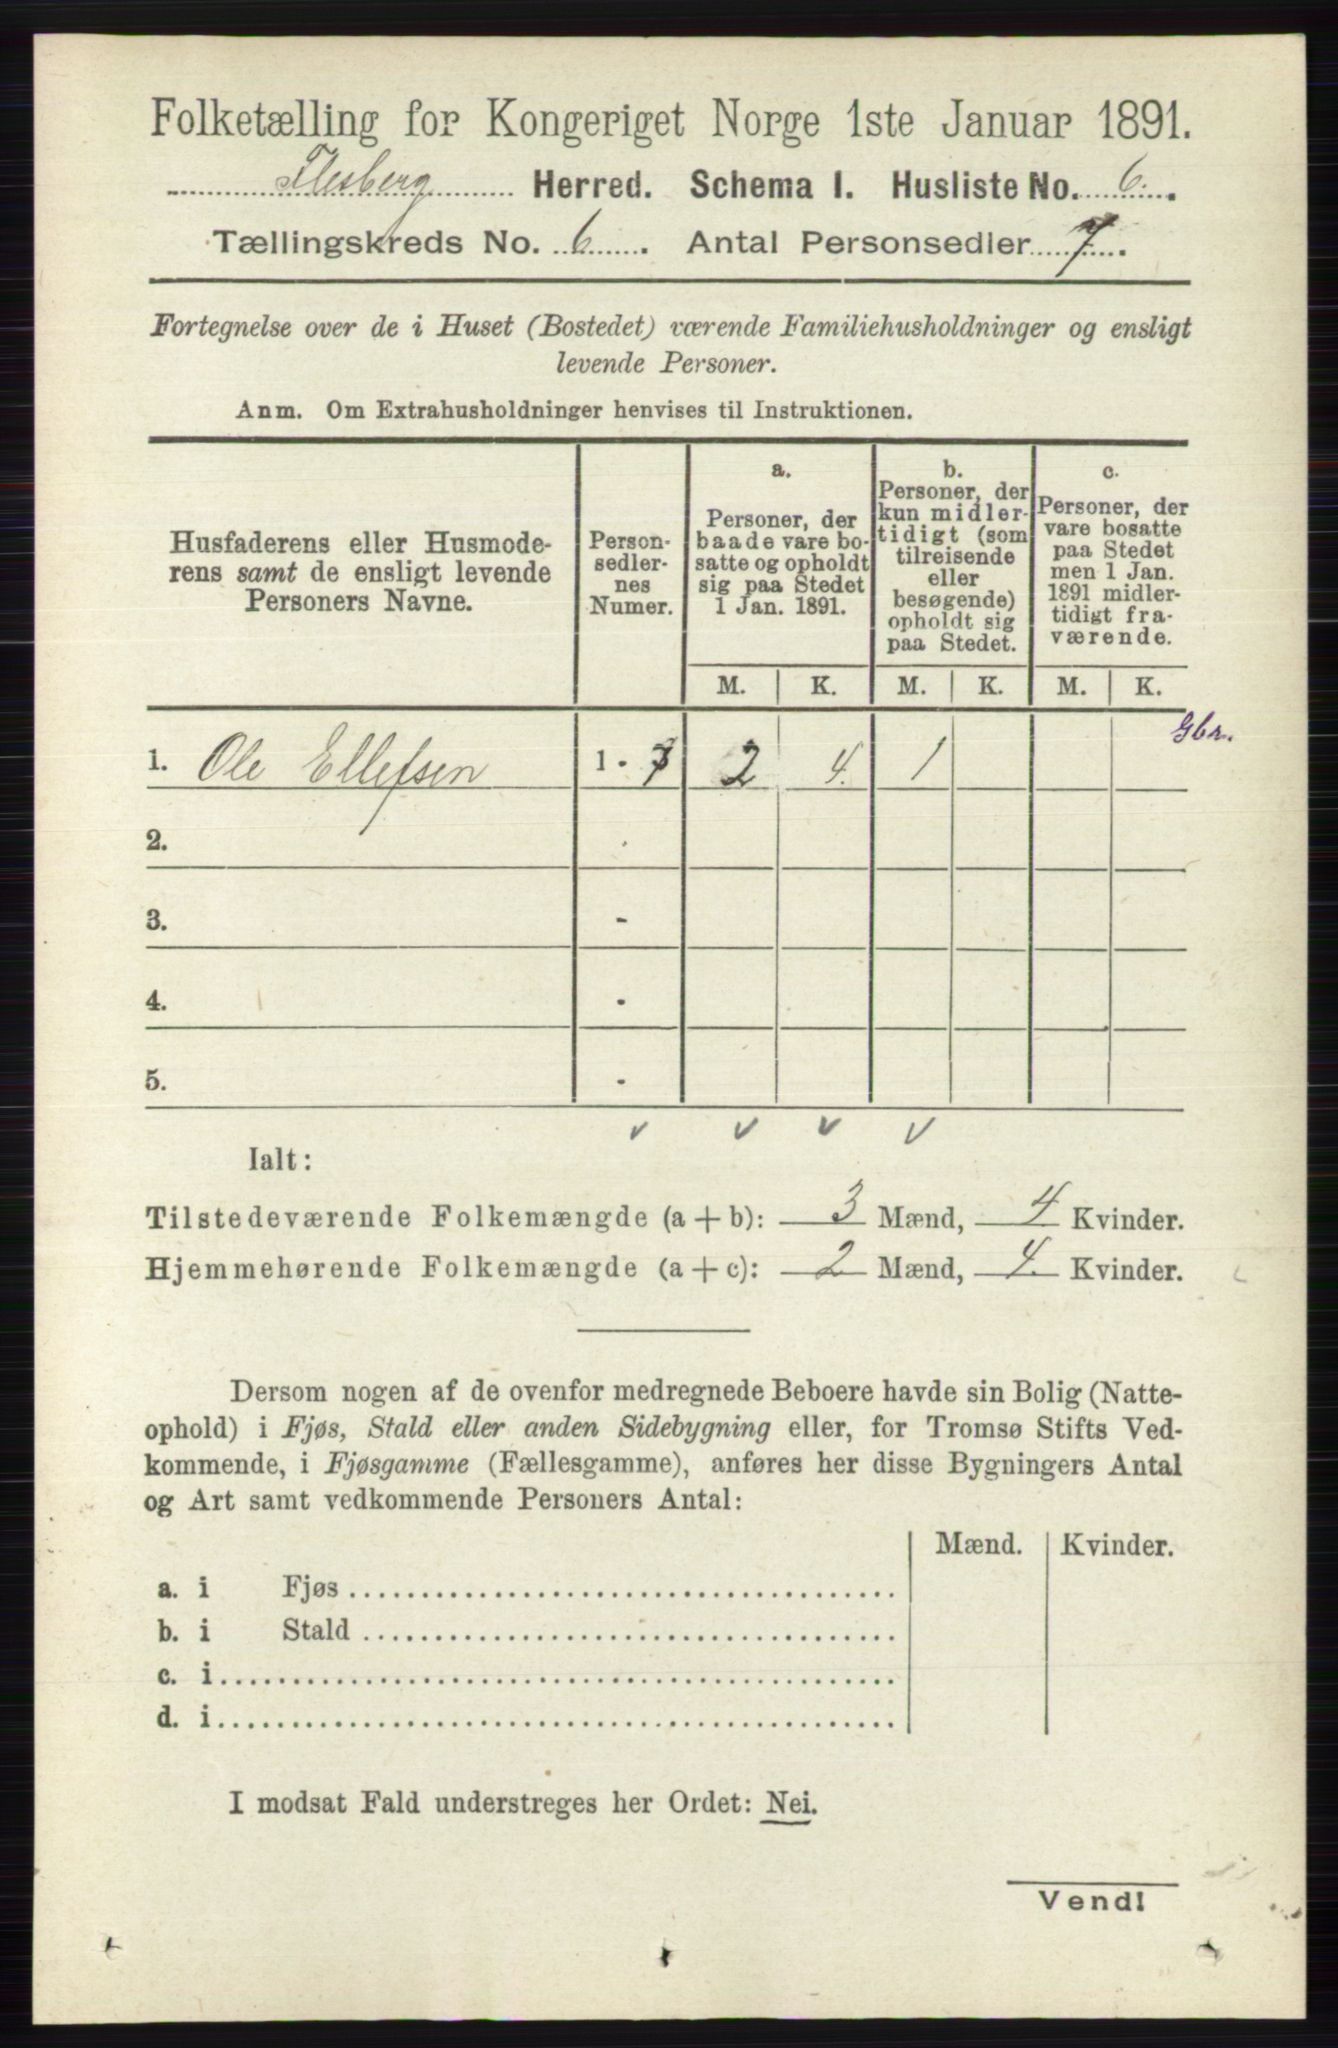 Folketælling for Kongeriget Norge 1ste Januar 1891.
Flesberg Herred. Schema I. Husliste No. 6.
Tællingskreds No. 6. Antal Personsedler 7.
Fortegnelse over de i Huset (Bostedet) værende Familiehusholdninger og ensligt
levende Personer.
Anm. Om Extrahusholdninger henvises til Instruktionen.
Husfaderens eller Husmode-
rens samt de ensligt levende
Personers Navne.
Person-
sedler-
nes
Numer.
a.
Personer, der
baade vare bo-
satte og opholdt
sig paa Stedet
1 Jan. 1891.
b.
Personer, der
kun midler-
tidigt (som
tilreisende
eller
besøgende)
opholdt sig
paa Stedet.
c.
Personer, der
vare bosatte
paa Stedet
men 1 Jan.
1891 midler-
tidigt fra-
værende.
M. K. M. K. M. K.
Gbr.
1. Ole Ellefsen 1 - 7 2 4. 1
2. -
3. -
4. -
5. -
Ialt:
Tilstedeværende Folkemængde (a + b): 3 Mænd, 4 Kvinder.
Hjemmehørende Folkemængde (a + c): 2 Mænd, 4. Kvinder.
Dersom nogen af de ovenfor medregnede Beboere havde sin Bolig (Natte-
ophold) i Fjøs, Stald eller anden Sidebygning eller, for Tromsø Stifts Ved-
kommende, i Fjøsgamme (Fællesgamme), anføres her disse Bygningers Antal
og Art samt vedkommende Personers Antal:
Mænd. Kvinder.
a. i Fjøs
b. i Stald
c. i
d. i
I modsat Fald understreges her Ordet: Nei.
Vend!